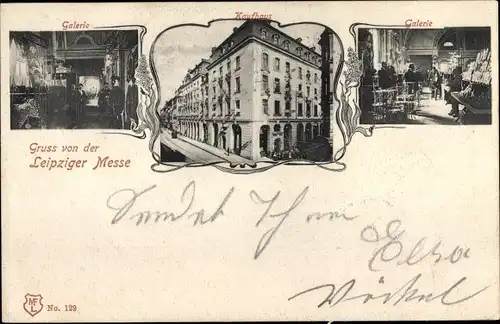 Galerie
Kaufhaus
Galerie
Gruss von der
Leipziger Messe
Sendet Ihnen
Elsa
MF
L
No. 129